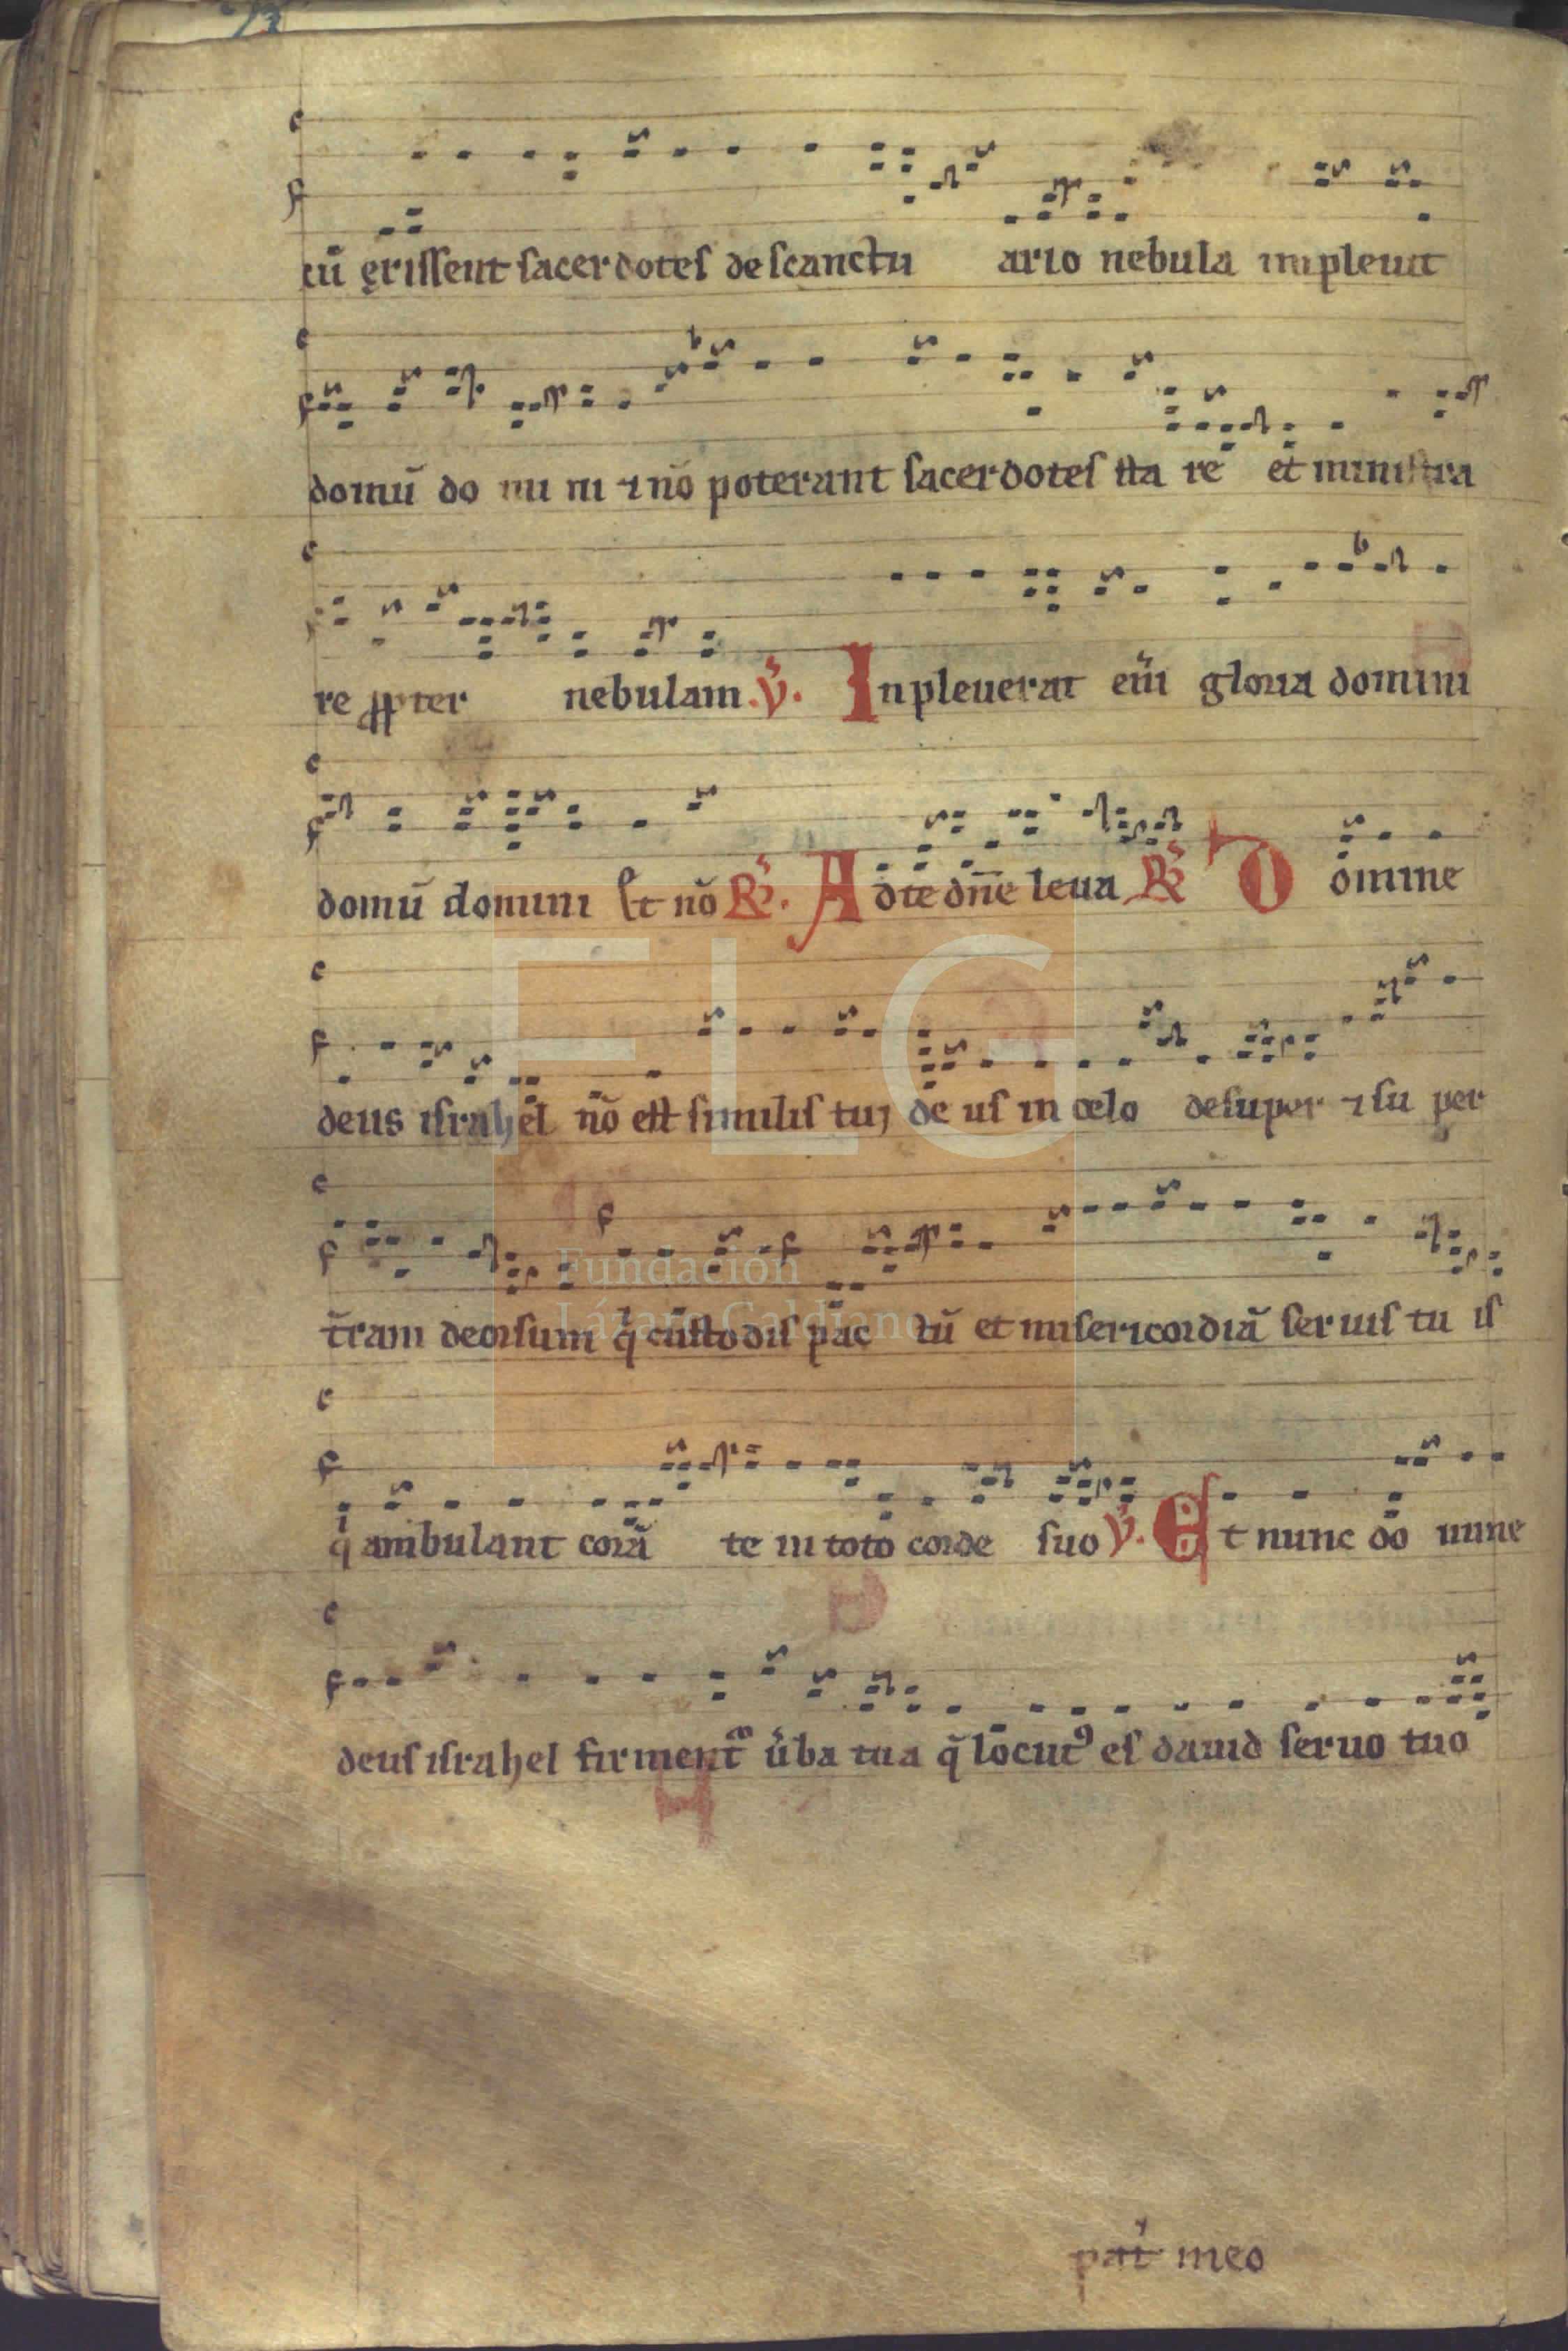 cū ęrissent sacerdotes de scanctu ario nebula impleuit
domū do mi ni ⁊ nō poterant sacerdotes sta re et ministra
re ꝓpter nebulam. V̓. Inpleuerat eni̓ gloria domini
domū domini Et nō R̓. Ad te dn̄e leua R̓ Domine
deus israhel nō est similis tui de us in celo desuper ⁊ su per
t̄ram deorsum q̓ cūstodis pac tū et misericordiā seruis tu is
q̓ ambulant corā te in toto corde suo V̓. Et nunc do mine
deus israhel firment̄ u̓ba tua q̄ locutꝰ es dauid seruo tuo
pat̓ meo
FLG
Fundación
Lázaro Galdiano